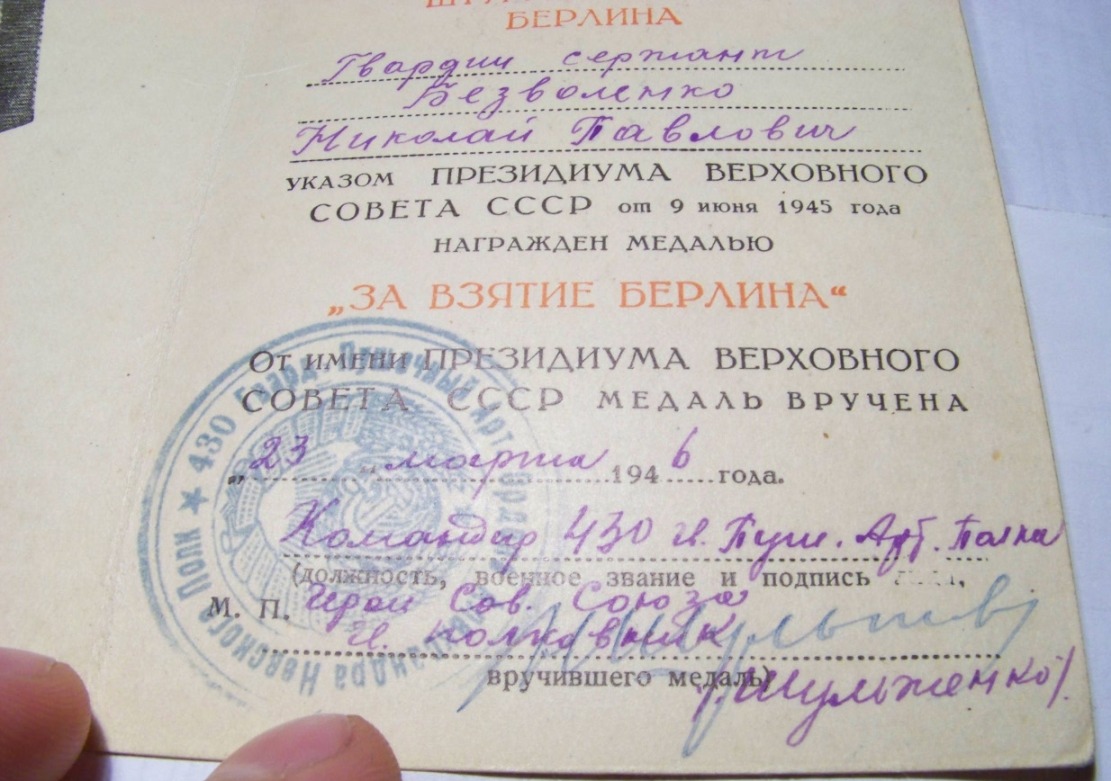 БЕРЛИНА
Гвардии сержант
Безволенко
Николай Павлович
УКАЗОМ ПРЕЗИДИУМА ВЕРХОВНОГО
СОВЕТА СССР от 9 июня 1945 года
НАГРАЖДЕН МЕДАЛЬЮ
„ЗА ВЗЯТИЕ БЕРЛИНА“
От имени ПРЕЗИДИУМА ВЕРХОВНОГО
СОВЕТА СССР МЕДАЛЬ ВРУЧЕНА
„23 „ марта 1946 года.
Командир 430 г. Пуш. Арт. Полка
(должность, военное звание и подпись
М. П. Герой Сов. Союза
г. полковник
вручившего медаль)
/Шульженко/.
★ 430 Гвард. Пушечный Арт
Александра Невского Полк